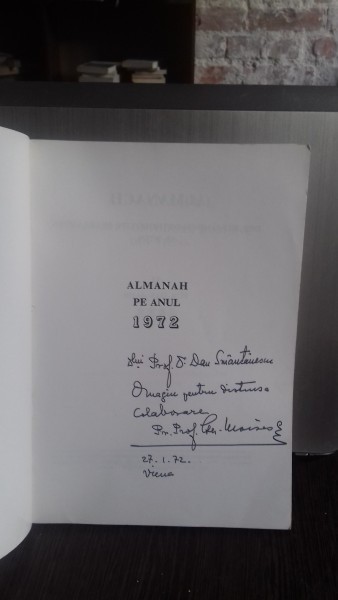 ALMANAH
PE ANUL
1972
Prof. Dr. Dan Smântânescu
Omagiu pentru distinsa
colaborare
Pr. Prof. Gh. Moisescu
27.1.72.
Viena